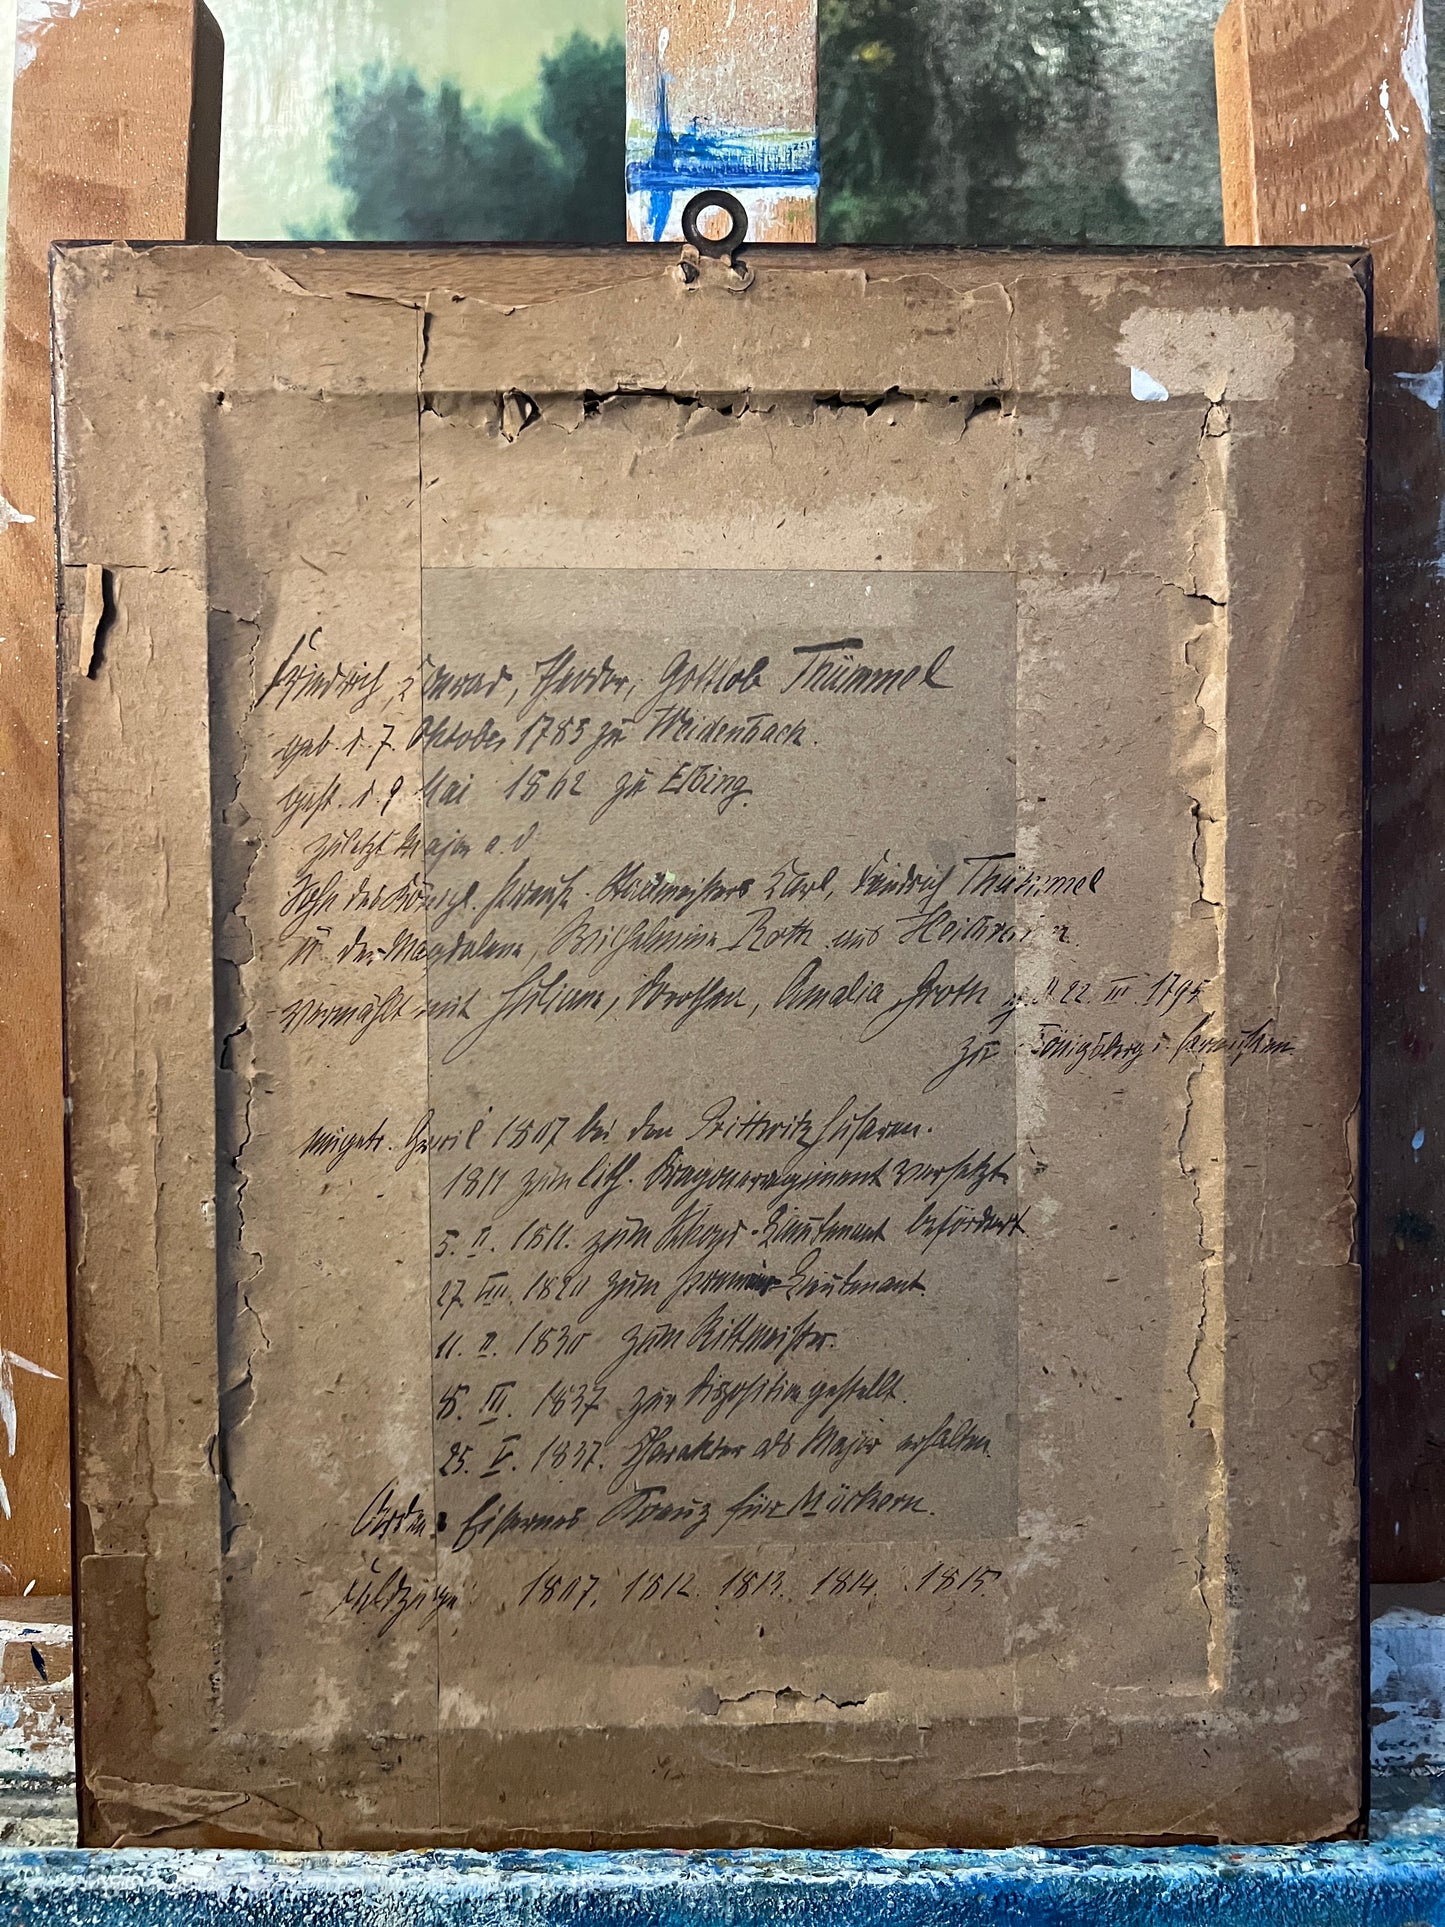 Friedrich, Conrad, Theodor, Gottlob Thümmel
geb. d. 7. Oktober 1783 zu Weidenbach.
Gest. d. 9 Mai 1862 zu Elbing.
zuletzt Major a. d
Sohn des Königl. Preuß. Stallmeisters Carl, Friedrich Thümmel
u. der Magdalena, Wilhelmine Roth aus
Vermählt mit Juliane, Dorothea, Amalia Groth 22. III. 1795
zu Königsberg i. Preußen
eingetr. April 1807 bei den Prittwitz Husaren.
1811 zum lith. Dragonerregiment versetzt
5. II. 1811. zum Lieutenant befördert
27. VIII. 1820 zum Premier-Lieutenant.
11. II. 1830 zum Rittmeister.
8. III. 1837 zur Disposition gestellt.
25. V. 1837. Charakter als Major erhalten.
Orden: Eisernes Kreuz für Möckern.
Feldzüge: 1807. 1812. 1813. 1814. 1815.